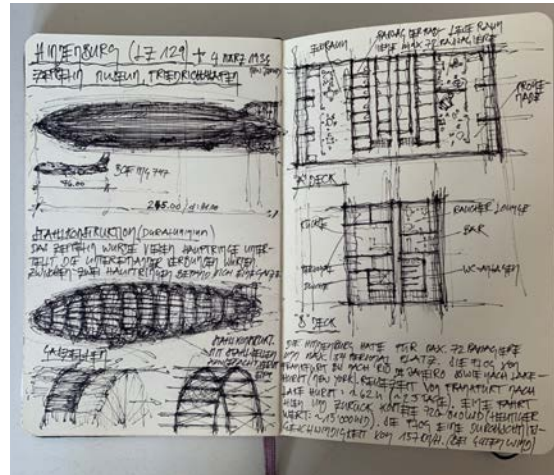 HINDENBURG (LZ 129)
ZEPPELIN MUSEUM, FRIEDRICHSHAFEN
BOEING 747
76.00
245.00
STAHLKONSTRUKTION (DURALUMINIUM)
DAS ZEPPELIN WURDE VIELEN HAUPTRINGE UNTER-
TEILT, DIE UNTEREINANDER VERBUNDEN WURDEN.
ZWISCHEN ZWEI HAUPTRINGEN BEFAND SICH EINE GASZELLE
GASZELLEN
MAX. 72 PASSAGIERE
PROME-
NADE
"A" DECK
KÜCHE
RAUCHER LOUNGE
BAR
PERSONAL
WC-ANLAGEN
"B" DECK
DIE HINDENBURG HATTE FÜR MAX. 72 PASSAGIERE
UND MAX. 54 PERSONAL PLATZ. DIE FLOG VON
FRANKFURT BIS NACH RIO DE JANEIRO SOWIE NACH LAKE-
HURST (NEW YORK). REISEZEIT VON FRANKFURT NACH
LAKE HURST: ~62H (~2.5 TAGE). EINE FAHRT
HIN UND ZURÜCK KOSTETE 720 USD (HEUTIGER
WERT: ~13'000 USD). DIE FLOG EINE DURCHSCHNITTS-
GESCHWINDIGKEIT VON (BEI GUTEN WIND)